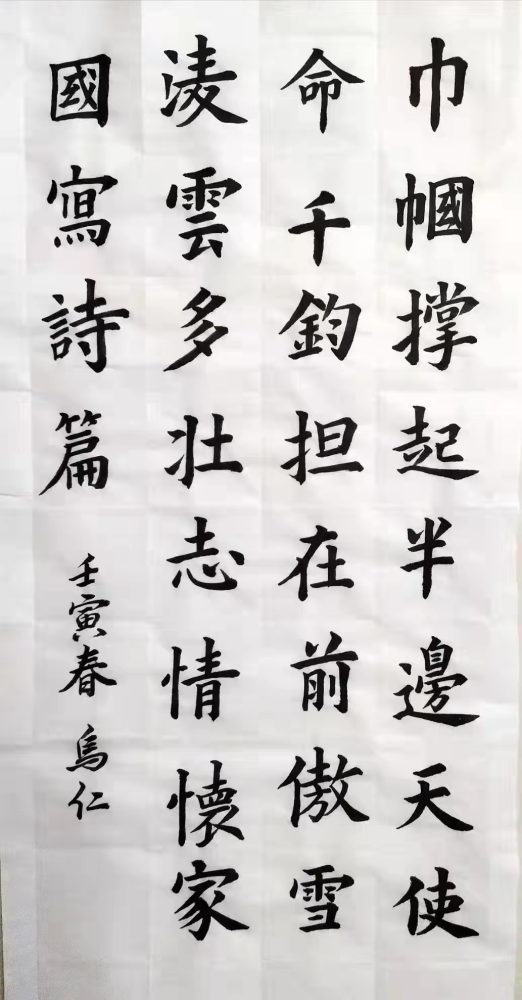 巾帼撑起半邊天使
命千鈞担在前傲雪
淩雲多壮志情懷家
國寫詩篇
壬寅春 烏仁